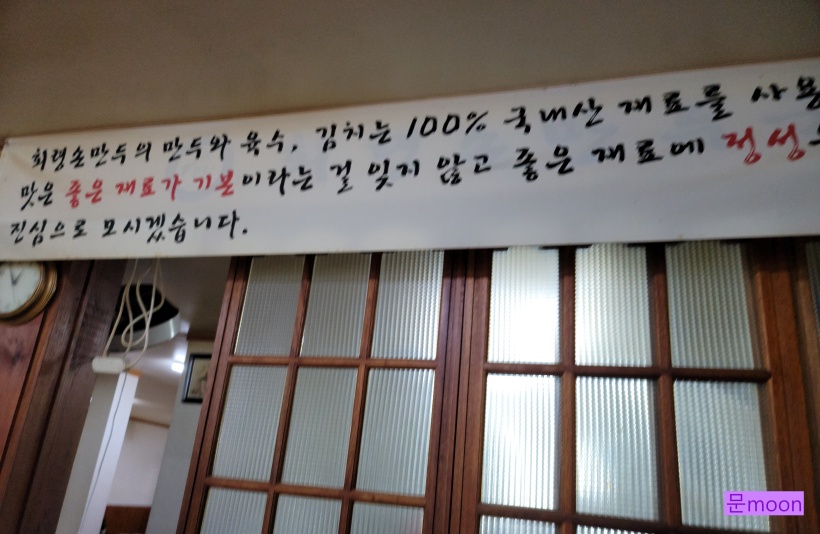 회령손만두의 만두와 육수, 김치는 100% 국내산 재료를 사용
맛은 좋은 재료가 기본이라는 걸 잊지 않고 좋은 재료에 정성
진심으로 모시겠습니다.
문moon